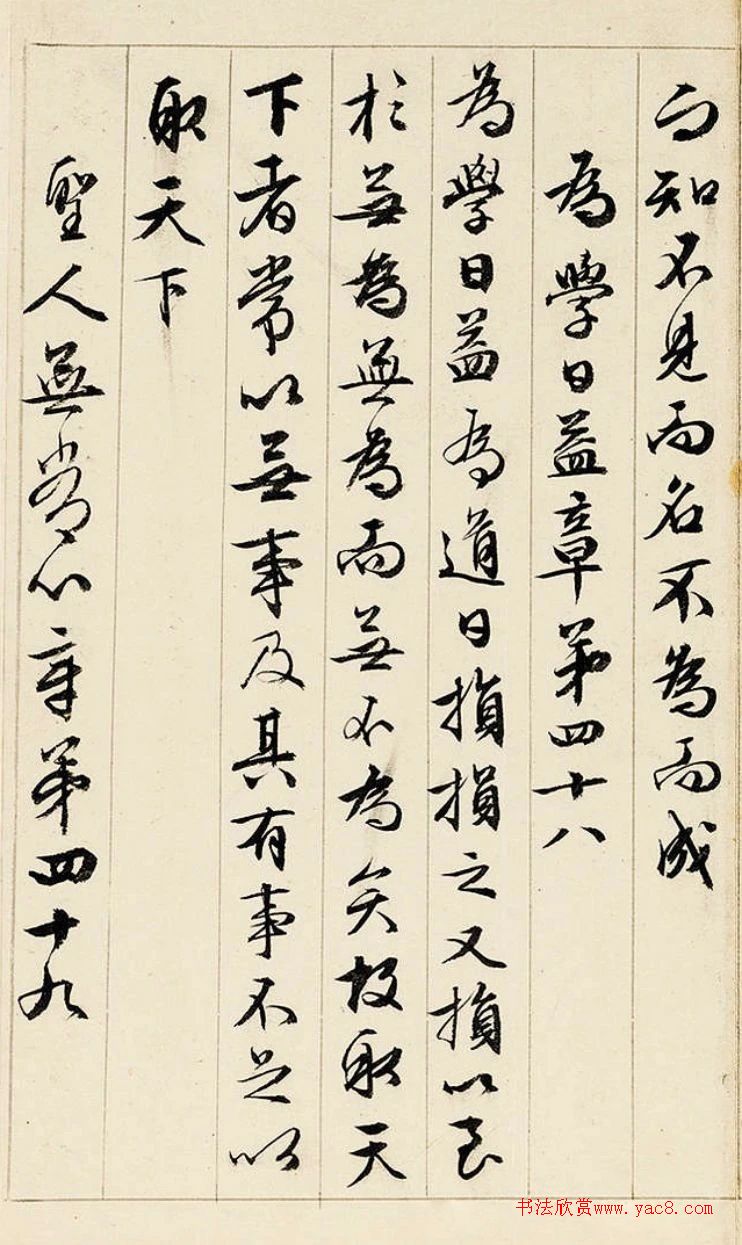 而知不見而名不為而成
為學日益章第四十八
為學日益為道日損損之又損以至
於無為無為而無不為矣故取天
下者常以無事及其有事不足以
取天下
聖人無常心章第四十九
书法欣赏www.yac8.com